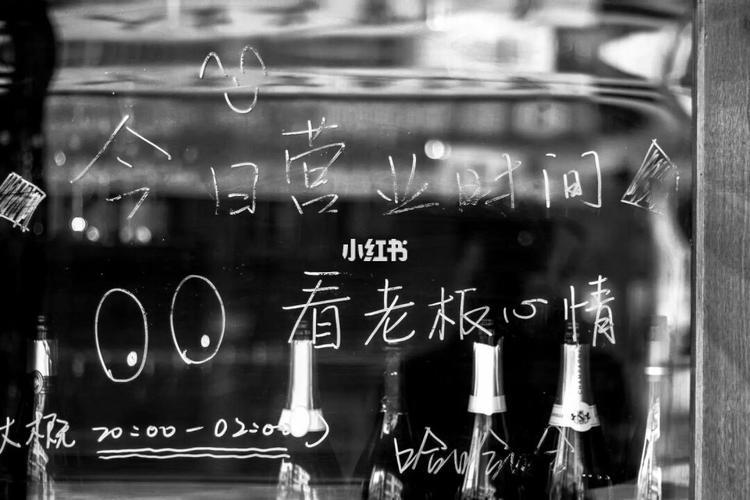 今日营业时间
小红书
看老板心情
大概 20:00-02:00
哈哈哈